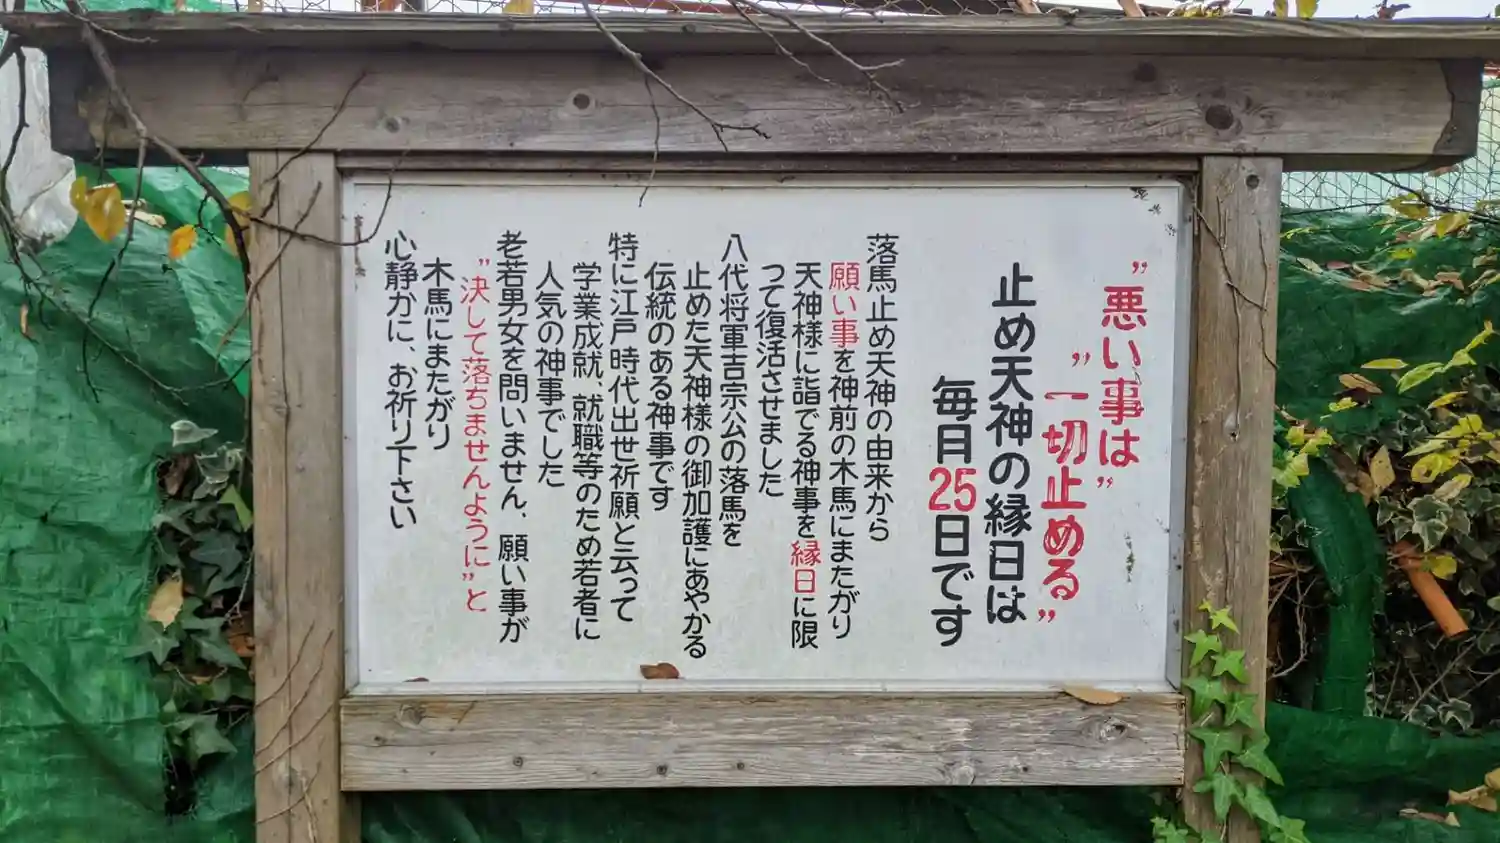 ”悪い事は”
”一切止める”
止め天神の縁日は
毎月25日です
落馬止め天神の由来から
願い事を神前の木馬にまたがり
天神様に詣でる神事を縁日に限
つて復活させました
八代将軍吉宗公の落馬を
止めた天神様の御加護にあやかる
伝統のある神事です
特に江戸時代出世祈願と云って
学業成就、就職等のため若者に
人気の神事でした
老若男女を問いません、願い事が
”決して落ちませんように”と
木馬にまたがり
心静かに、お祈り下さい